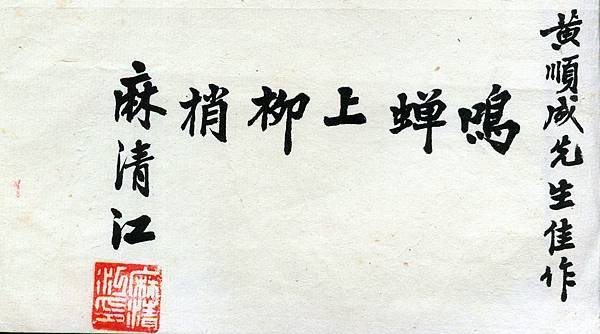 黄順成先生佳作
鳴蝉上柳梢
麻清江
麻清
江印